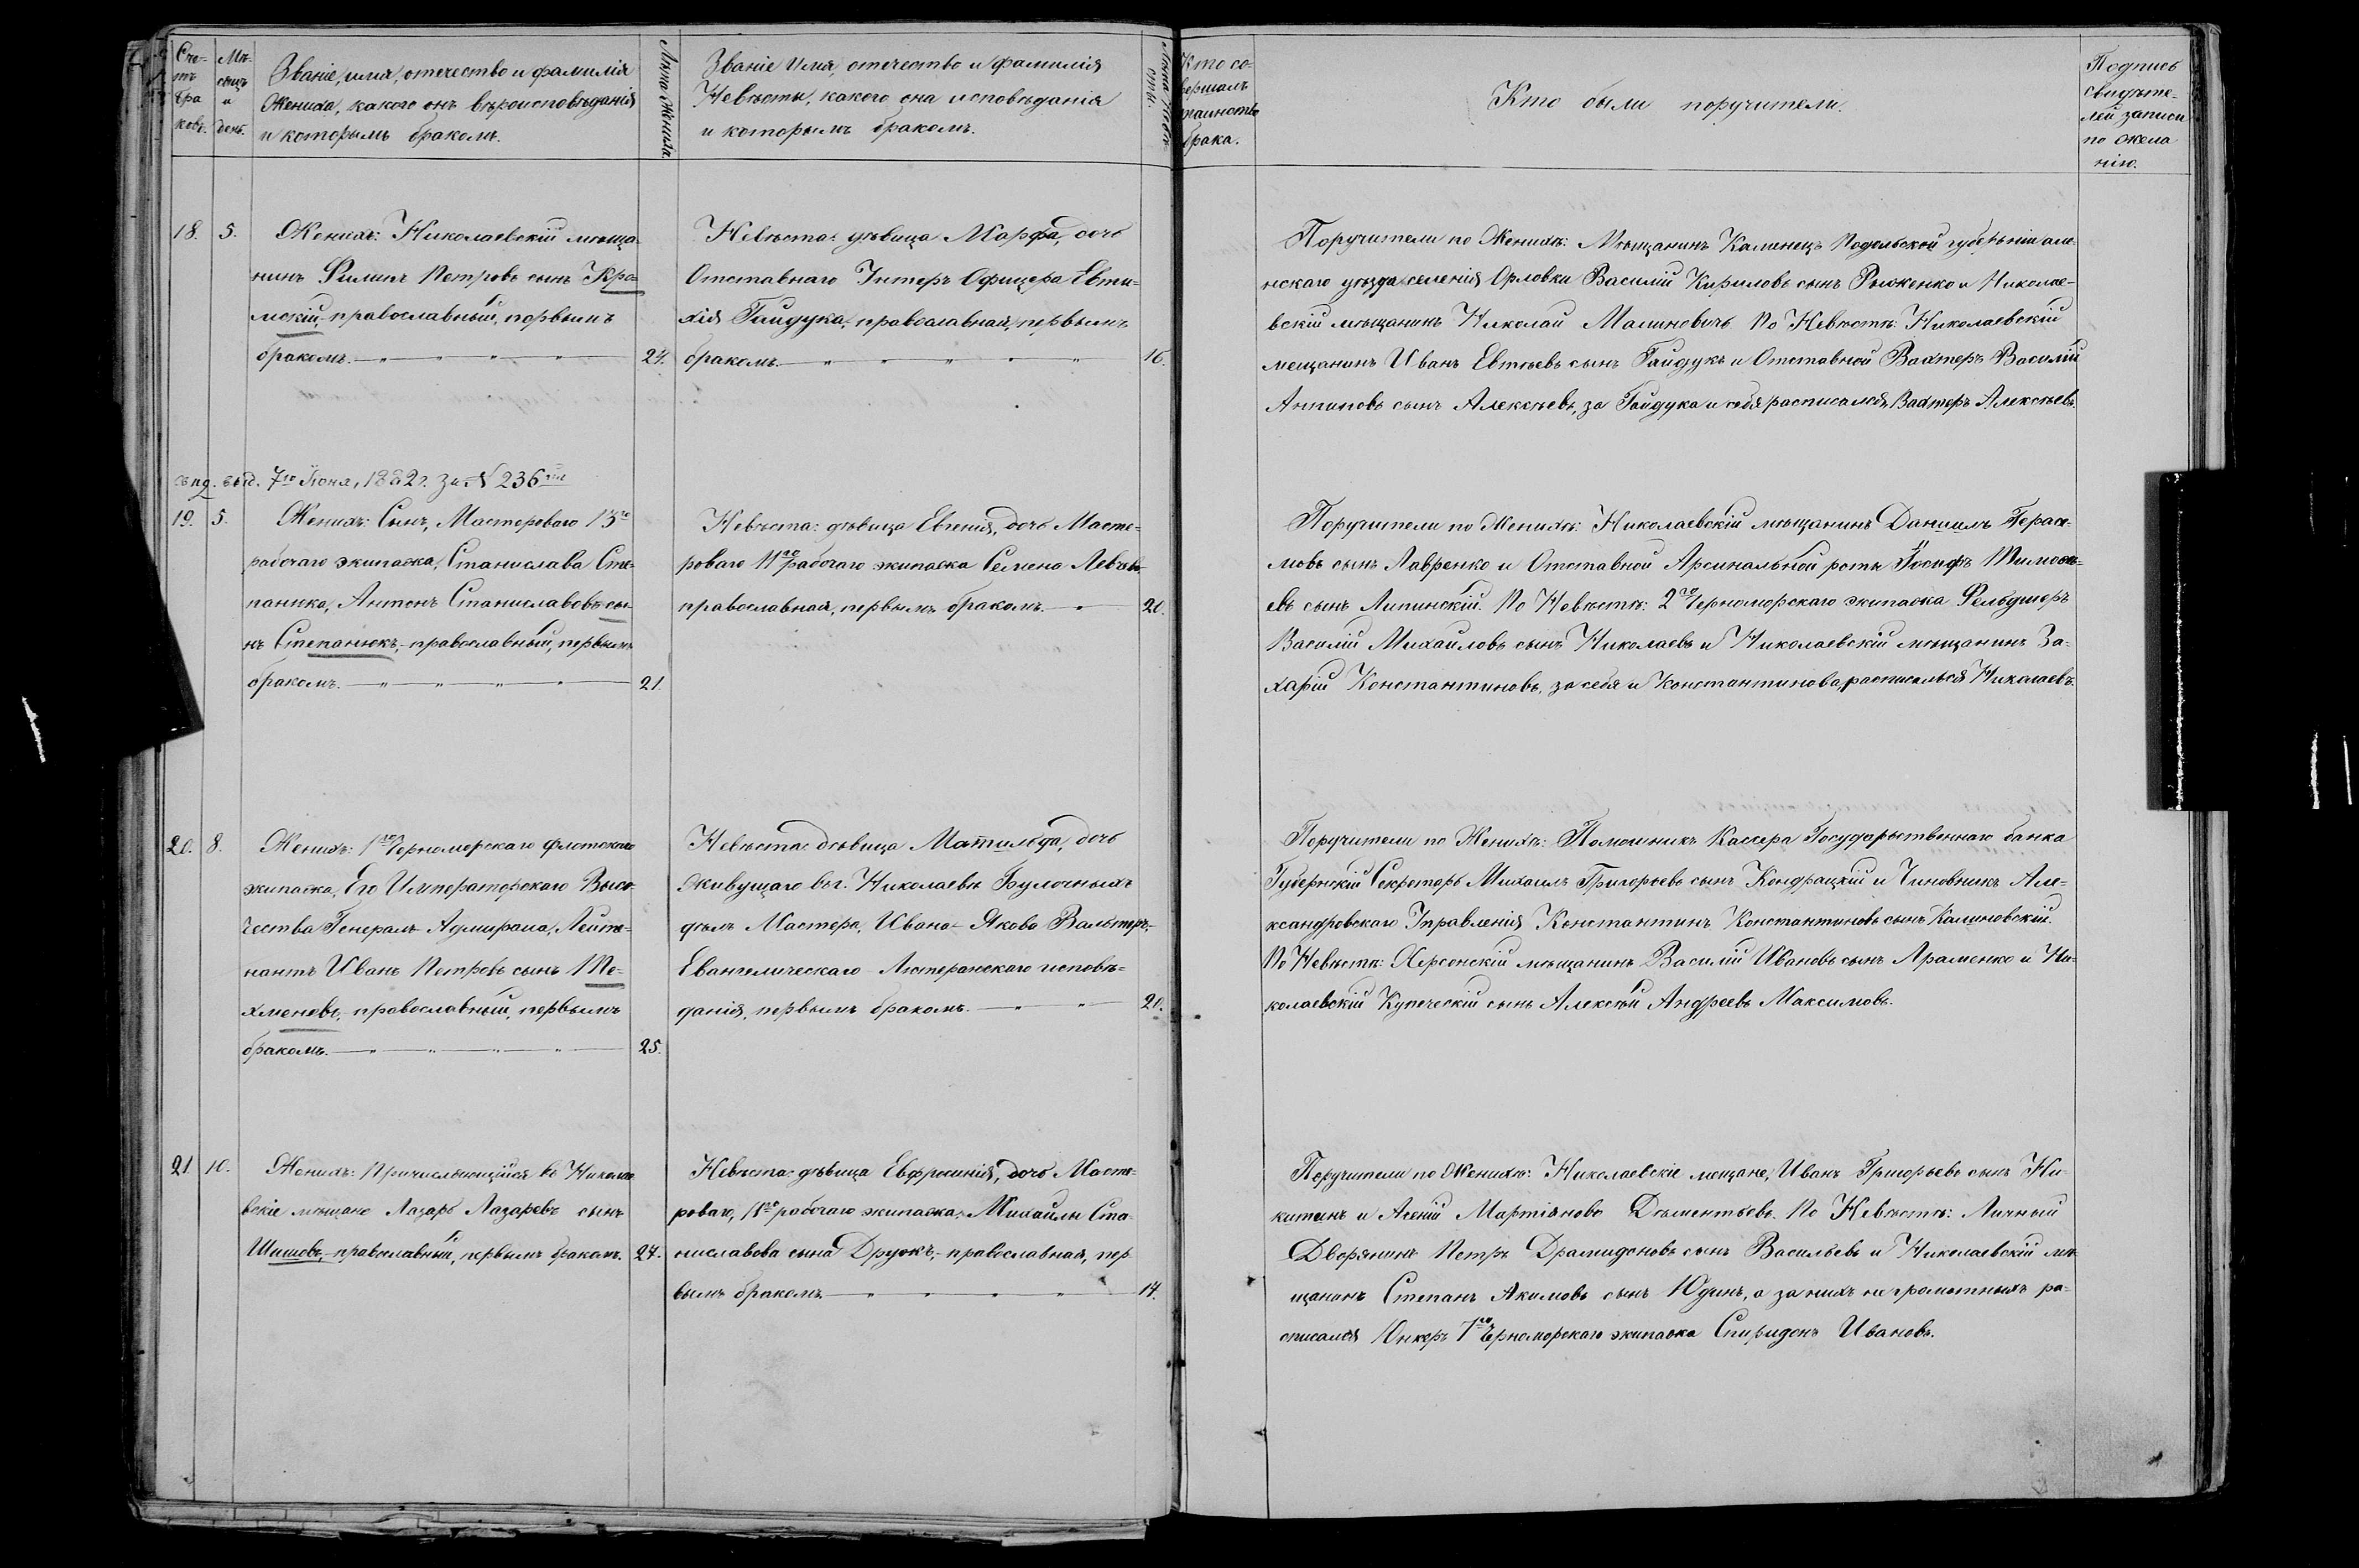 Сче-
тъ
бра
ковъ.
Мѣ-
сяцъ
и
день.
Званіе, имя, отечество и фамилія
Жениха, какого онъ вѣроисповѣданія
и которымъ бракомъ.
Лѣта Жениха.
Званіе имя, отечество и фамилія
Невѣсты, какого она исповѣданія
и которымъ бракомъ.
Лѣта Невѣ-
сты.
Кто со-
вершалъ
таинство
брака.
Кто были поручители.
Подпись
свидѣте-
лей записи
по жела
нію.
18. 5.
Женихъ: Николаевскій мѣща-
нинъ Филипъ Петровъ сынъ Кра-
мскій, православный, первымъ
бракомъ. 24.
Невѣста: дѣвица Марфа, дочь
Отставнаго Унтеръ Офицера Евти-
хія Гайдука, православная, первымъ
бракомъ. 16.
Поручители по Женихѣ: Мѣщанинъ Каминецъ Подольской губерніи
нскаго уѣзда селенія Орловки Василій Кириловъ сынъ Рыженко и Николае-
вскій мѣщанинъ Николай Малиновичъ По Невѣстѣ: Николаевскій
мещанинъ Иванъ Евтѣевъ сынъ Гайдукъ и Отставной Вахтеръ Василій
Антиповъ сынъ Алексѣевъ, за Гайдука и себя расписался, Вахтеръ Алексѣевъ.
выд. 7го Іюня, 1882 г. За № 236мъ
19. 5.
Женихъ: Сынъ, Мастероваго 13го
рабочаго экипажа, Станислава Сте-
панюка, Антонъ Станиславовъ сы-
нъ Степанюкъ, православный, первымъ
бракомъ. 21.
Невѣста: дѣвица Евгенія, дочь Масте-
роваго 11го рабочаго экипажа Семена
православная, первымъ бракомъ. 20.
Поручители по Женихѣ: Николаевскій мѣщанинъ Даніилъ Гераси-
мовъ сынъ Лавренко и Отставной Арсинальной роты Іосифъ Тимофѣ-
евъ сынъ Липинскій. По Невѣстѣ: 2го Черноморскаго экипажа Фельдшеръ
Василій Михайловъ сынъ Николаевъ и Николаевскій мѣщанинъ За-
харій Константиновъ, за себя и Константинова, расписался Николаевъ.
20. 8.
Женихъ: 1го Черноморскаго флотскаго
экипажа, Его Императорскаго Высо-
чества Генералъ Адмирала, Лейте-
нантъ Иванъ Петровъ сынъ Те-
хменевъ, православный, первымъ
бракомъ. 25.
Невѣста: дѣвица Матильда, дочь
живущаго въ г. Николаевѣ Булочныхъ
дѣлъ Мастера, Ивана-Якова Вальтеръ,
Евангелическаго-Лютеранскаго исповѣ-
данія, первымъ бракомъ. 20.
Поручители по Женихѣ: Помошникъ Кассера Государственнаго банка
Губернскій Секретарь Михаилъ Григорьевъ сынъ Кондрацкій и Чиновникъ Але-
ксандровскаго Управленія Константинъ Константиновъ сынъ Калиновскій.
По Невѣстѣ: Херсонскій мѣщанинъ Василій Ивановъ сынъ Араменко и Ни-
колаевскій Купеческій сынъ Алексѣй Андреевъ Максимовъ.
21. 10.
Женихъ: Причисляющійся въ Никола
вскіе мѣщане Лазарь Лазаревъ сынъ
Шишовъ, православный, первымъ бракомъ. 24.
Невѣста: дѣвица Евфросинія, дочь Масте-
роваго, 11го рабочаго экипажа, Михаилы Ста-
ниславова сына Друокъ, православная, пер
вымъ бракомъ 17.
Поручители по Женихѣ: Николаевскіе мещане, Иванъ Григорьевъ сынъ Ни-
китинъ и Агеній Мартіяновъ Дементьевъ. По Невѣстѣ: Личный
Дворянинъ Петръ Драмидоновъ сынъ Васильевъ и Николаевскій мѣ-
щанинъ Степанъ Акимовъ сынъ Юдинъ, а за нихъ не грамотныхъ ра-
списался Юнкеръ 1го Черноморскаго экипажа Спиридонъ Ивановъ.